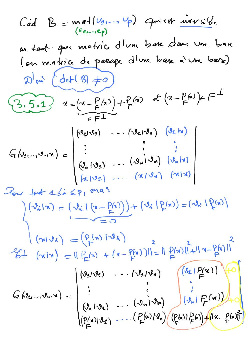 Càd B = mat(v₁,...,vₚ) qui est inversible
(e₁,...,eₚ)
en tant que matrice d'une base dans une base
(ou matrice de passage d'une base à une base)
D'où det(B) ≠ 0
B.5.1 x = (x - P_F(x)) + P_F(x) et (x - P_F(x)) ∈ F^⊥
∈ F^⊥
G(v₁,...,vₚ,x) = | (v₁|v₁) ... (v₁|vₚ) (v₁|x) |
⋮ ⋮ ⋮
| (vₚ|v₁) ... (vₚ|vₚ) (vₚ|x) |
| (x|v₁) ... (x|vₚ) (x|x) |
Pour tout 1≤i≤p, on a:
(vᵢ|x) = (vᵢ|x - P_F(x)) + (vᵢ|P_F(x)) = (vᵢ|P_F(x))
= 0
(x|vᵢ) = (P_F(x)|vᵢ)
Et (x|x) = ||P_F(x) + (x - P_F(x))||² = ||P_F(x)||² + ||x - P_F(x)||²
G(v₁,...,vₚ,x) = | (v₁|v₁) ... (v₁|vₚ) (v₁|P_F(x)) |
⋮ ⋮
| (vₚ|v₁) ... (vₚ|vₚ) (vₚ|P_F(x)) |
| (P_F(x)|v₁) ... (P_F(x)|vₚ) (P_F(x)|P_F(x)) + ||x - P_F(x)||² |